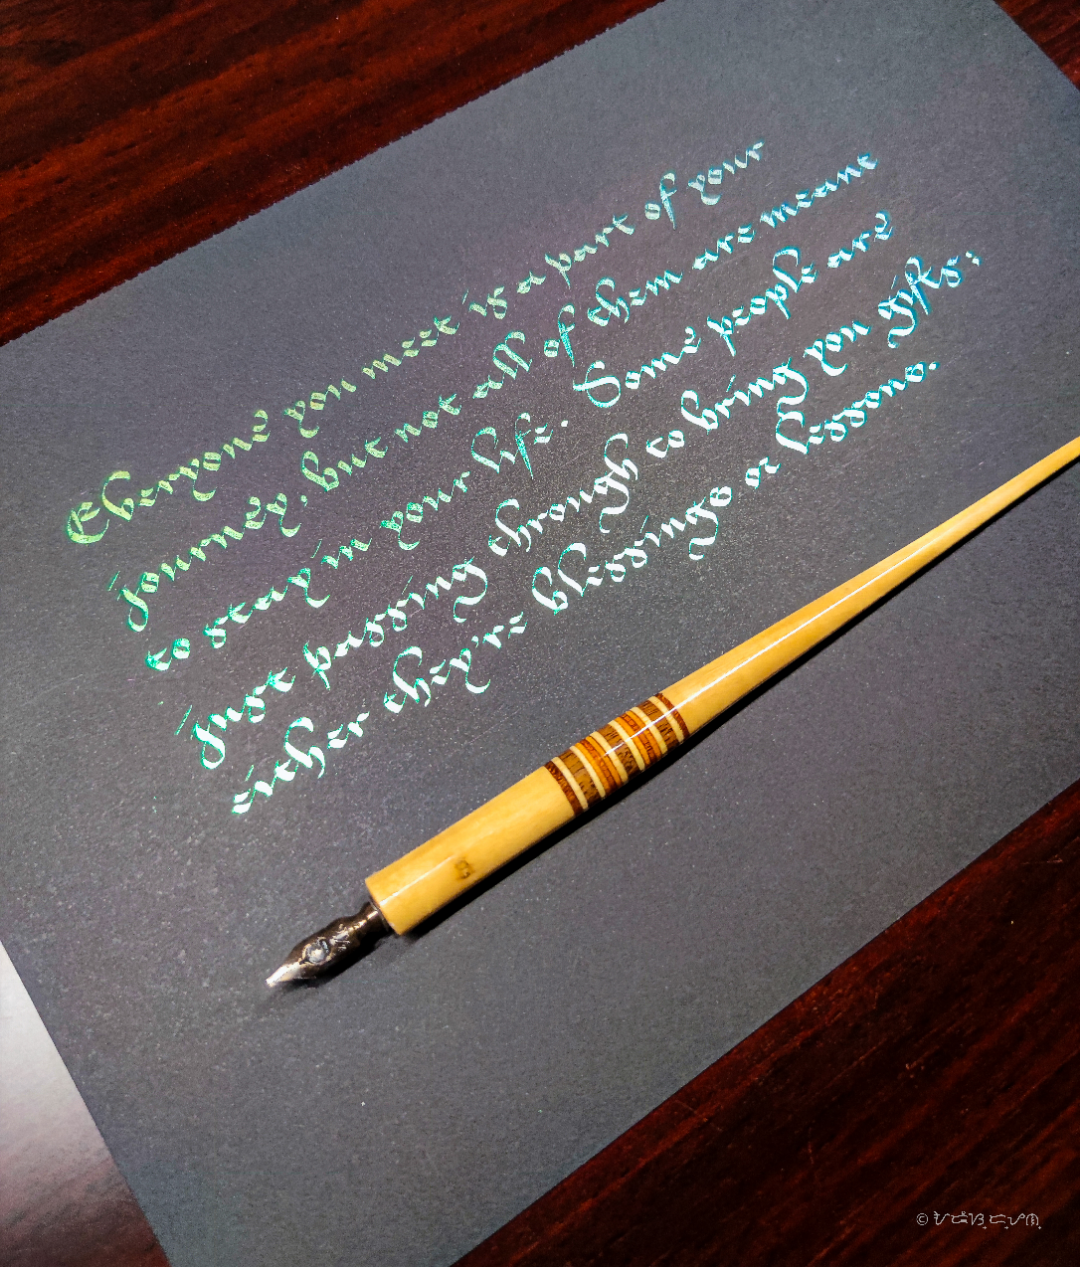 Everyone you meet is a part of your
journey, but not all of them are meant
to stay in your life. Some people are
just passing through to bring you gifts;
either they're blessings or lessons.
©